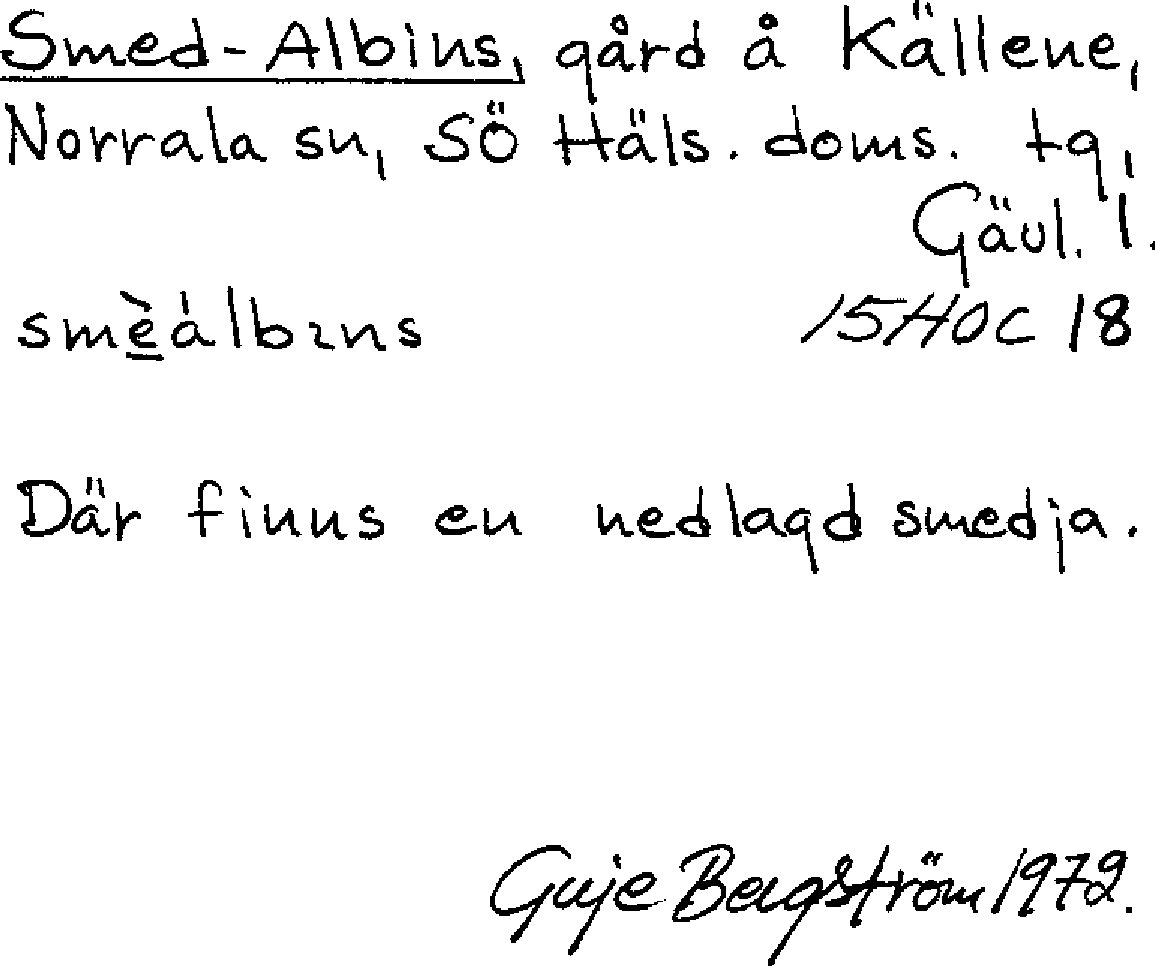 Smed-Albins, gård å Källene,
Norrala sn, SÖ Häls. doms. tg,
Gävl. l.
smè̱álbɩns 15H0C 18
Där finns en nedlagd smedja.
Guje Bergström 1972.